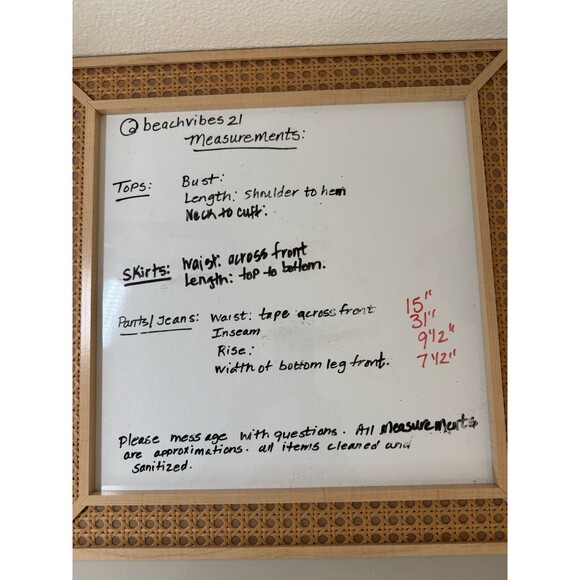 @beachvibes21
Measurements:
Tops: Bust:
Length: shoulder to hem
Neck to cuff:
Skirts: Waist: across front
Length: top to bottom.
Pants/Jeans: Waist: tape across front 15"
Inseam 31"
Rise: 9 1/2"
Width of bottom leg front. 7 1/2"
Please message with questions. All measurements
are approximations. all items cleaned and
sanitized.